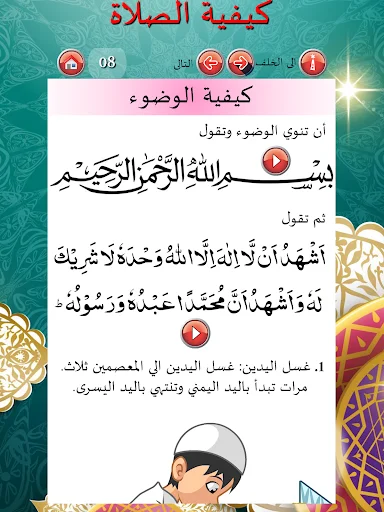 كيفية الصلاة
الى الخلف التالى 08
كيفية الوضوء
أن تنوي الوضوء وتقول
بِسْمِ اللهِ الرَّحْمٰنِ الرَّحِيْمِ
ثم تقول
اَشْهَدُ اَنْ لَّا اِلٰهَ اِلَّا اللهُ وَحْدَهٗ لَا شَرِيْكَ
لَهٗ وَاَشْهَدُ اَنَّ مُحَمَّدًا عَبْدُهٗ وَرَسُوْلُهٗ ؕ
1. غسل اليدين: غسل اليدين الي المعصمين ثلاث.
مرات تبدأ باليد اليمني وتنتهي باليد اليسرى.